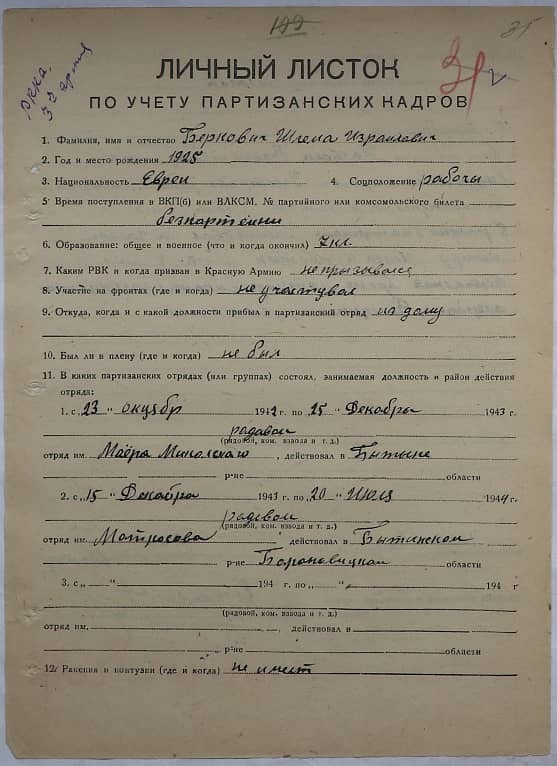 199
РККА.
32 армия
ЛИЧНЫЙ ЛИСТОК
ПО УЧЕТУ ПАРТИЗАНСКИХ КАДРОВ
1. Фамилия, имя и отчество Беркович Шлема Израилевич
2. Год и место рождения 1925
3. Национальность Еврей 4. Соцположение рабочы
5. Время поступления в ВКП(б) или ВЛКСМ, № партийного или комсомольского билета
безпартейни
6. Образование: общее и военное (что и когда окончил) 7 кл.
7. Каким РВК и когда призван в Красную Армию не призывался
8. Участие на фронтах (где и когда) не участувал
9. Откуда, когда и с какой должности прибыл в партизанский отряд из дому
10. Был ли в плену (где и когда) не был
11. В каких партизанских отрядах (или группах) состоял, занимаемая должность и район действия
отряда:
1. с „23 “ октябр 1942 г. по 25 „ Декабры 1943 г.
радавой
(рядовой, ком. взвода и т. д.)
отряд им. Маёра , действовал в Бытыне
р-не области
2. с „15 “ Декабра 1943 г. по „20 “ Июля 1944 г.
радевой
(рядовой, ком. взвода и т. д.)
отряд им. Матросова действовал в Бытинском
р-не Барановицкой области
3. с „ “ 194 г. по „ “ 194 г
(рядовой, ком. взвода и т. д.)
отряд им. , действовал в
р-не области
12. Ранения и контузии (где и когда) не имеет